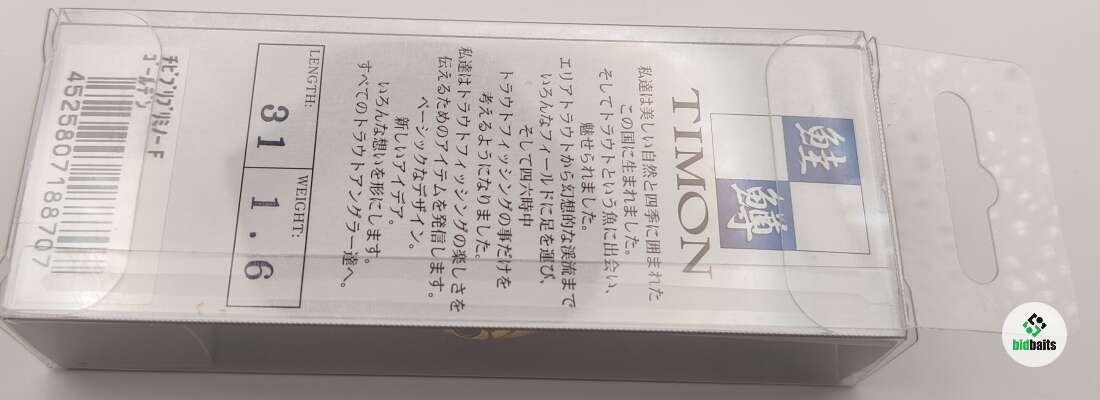 鮭
鱒
TIMON
私達は美しい自然と四季に囲まれた
この国に生まれました。
そしてトラウトという魚に出会い、
魅せられました。
エリアトラウトから幻想的な渓流まで
いろんなフィールドに足を運び、
トラウトフィッシングの事だけを
そして四六時中
考えるようになりました。
私達はトラウトフィッシングの楽しさを
伝えるためのアイテムを発信します。
ベーシックなデザイン。
新しいアイデア。
いろんな想いを形にします。
すべてのトラウトアングラー達へ。
LENGTH: 31
WEIGHT: 1.6
ﾁﾋﾞﾌﾞﾘﾌﾞﾘﾐﾉｰF
ｺﾞｰﾙﾃﾞﾝ
4525807188707
bidbaits